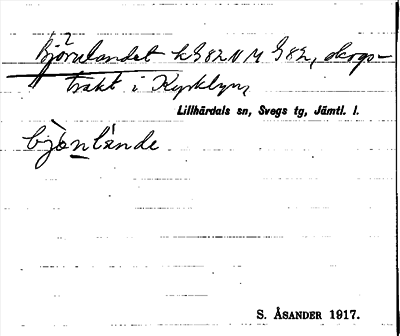 Björnlandet kG82NM G82, skogs-
trakt i Kyrkbyn,
Lillhärdals sn, Svegs tg, Jämtl. l.
bjö̀nlánde
S. ÅSANDER 1917.